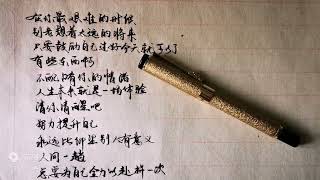 在你最艰难的时候
别老想着太远的将来
只要鼓励自己过好今天就可以了
有些东西啊
不配占有你的情绪
人生本来就是一场体验
请你尽兴吧
努力提升自己
永远比仰望别人有意义
人间一趟
总要为自己全力以赴一次